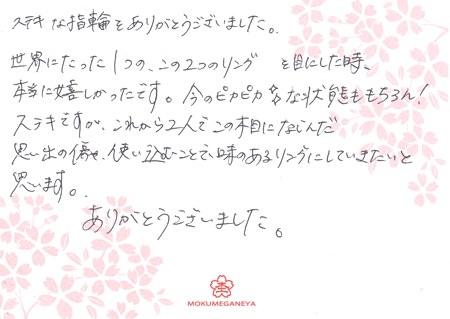 ステキな指輪をありがとうございました。
世界にたった1つの、この2つのリング を目にした時、
本当に嬉しかったです。今のピカピカな状態ももちろん!
ステキですが、これから2人でこの木目になじんだ
思い出の傷や、使い込むことで味のあるリングにしていきたいと
思います。
ありがとうございました。
MOKUMEGANEYA